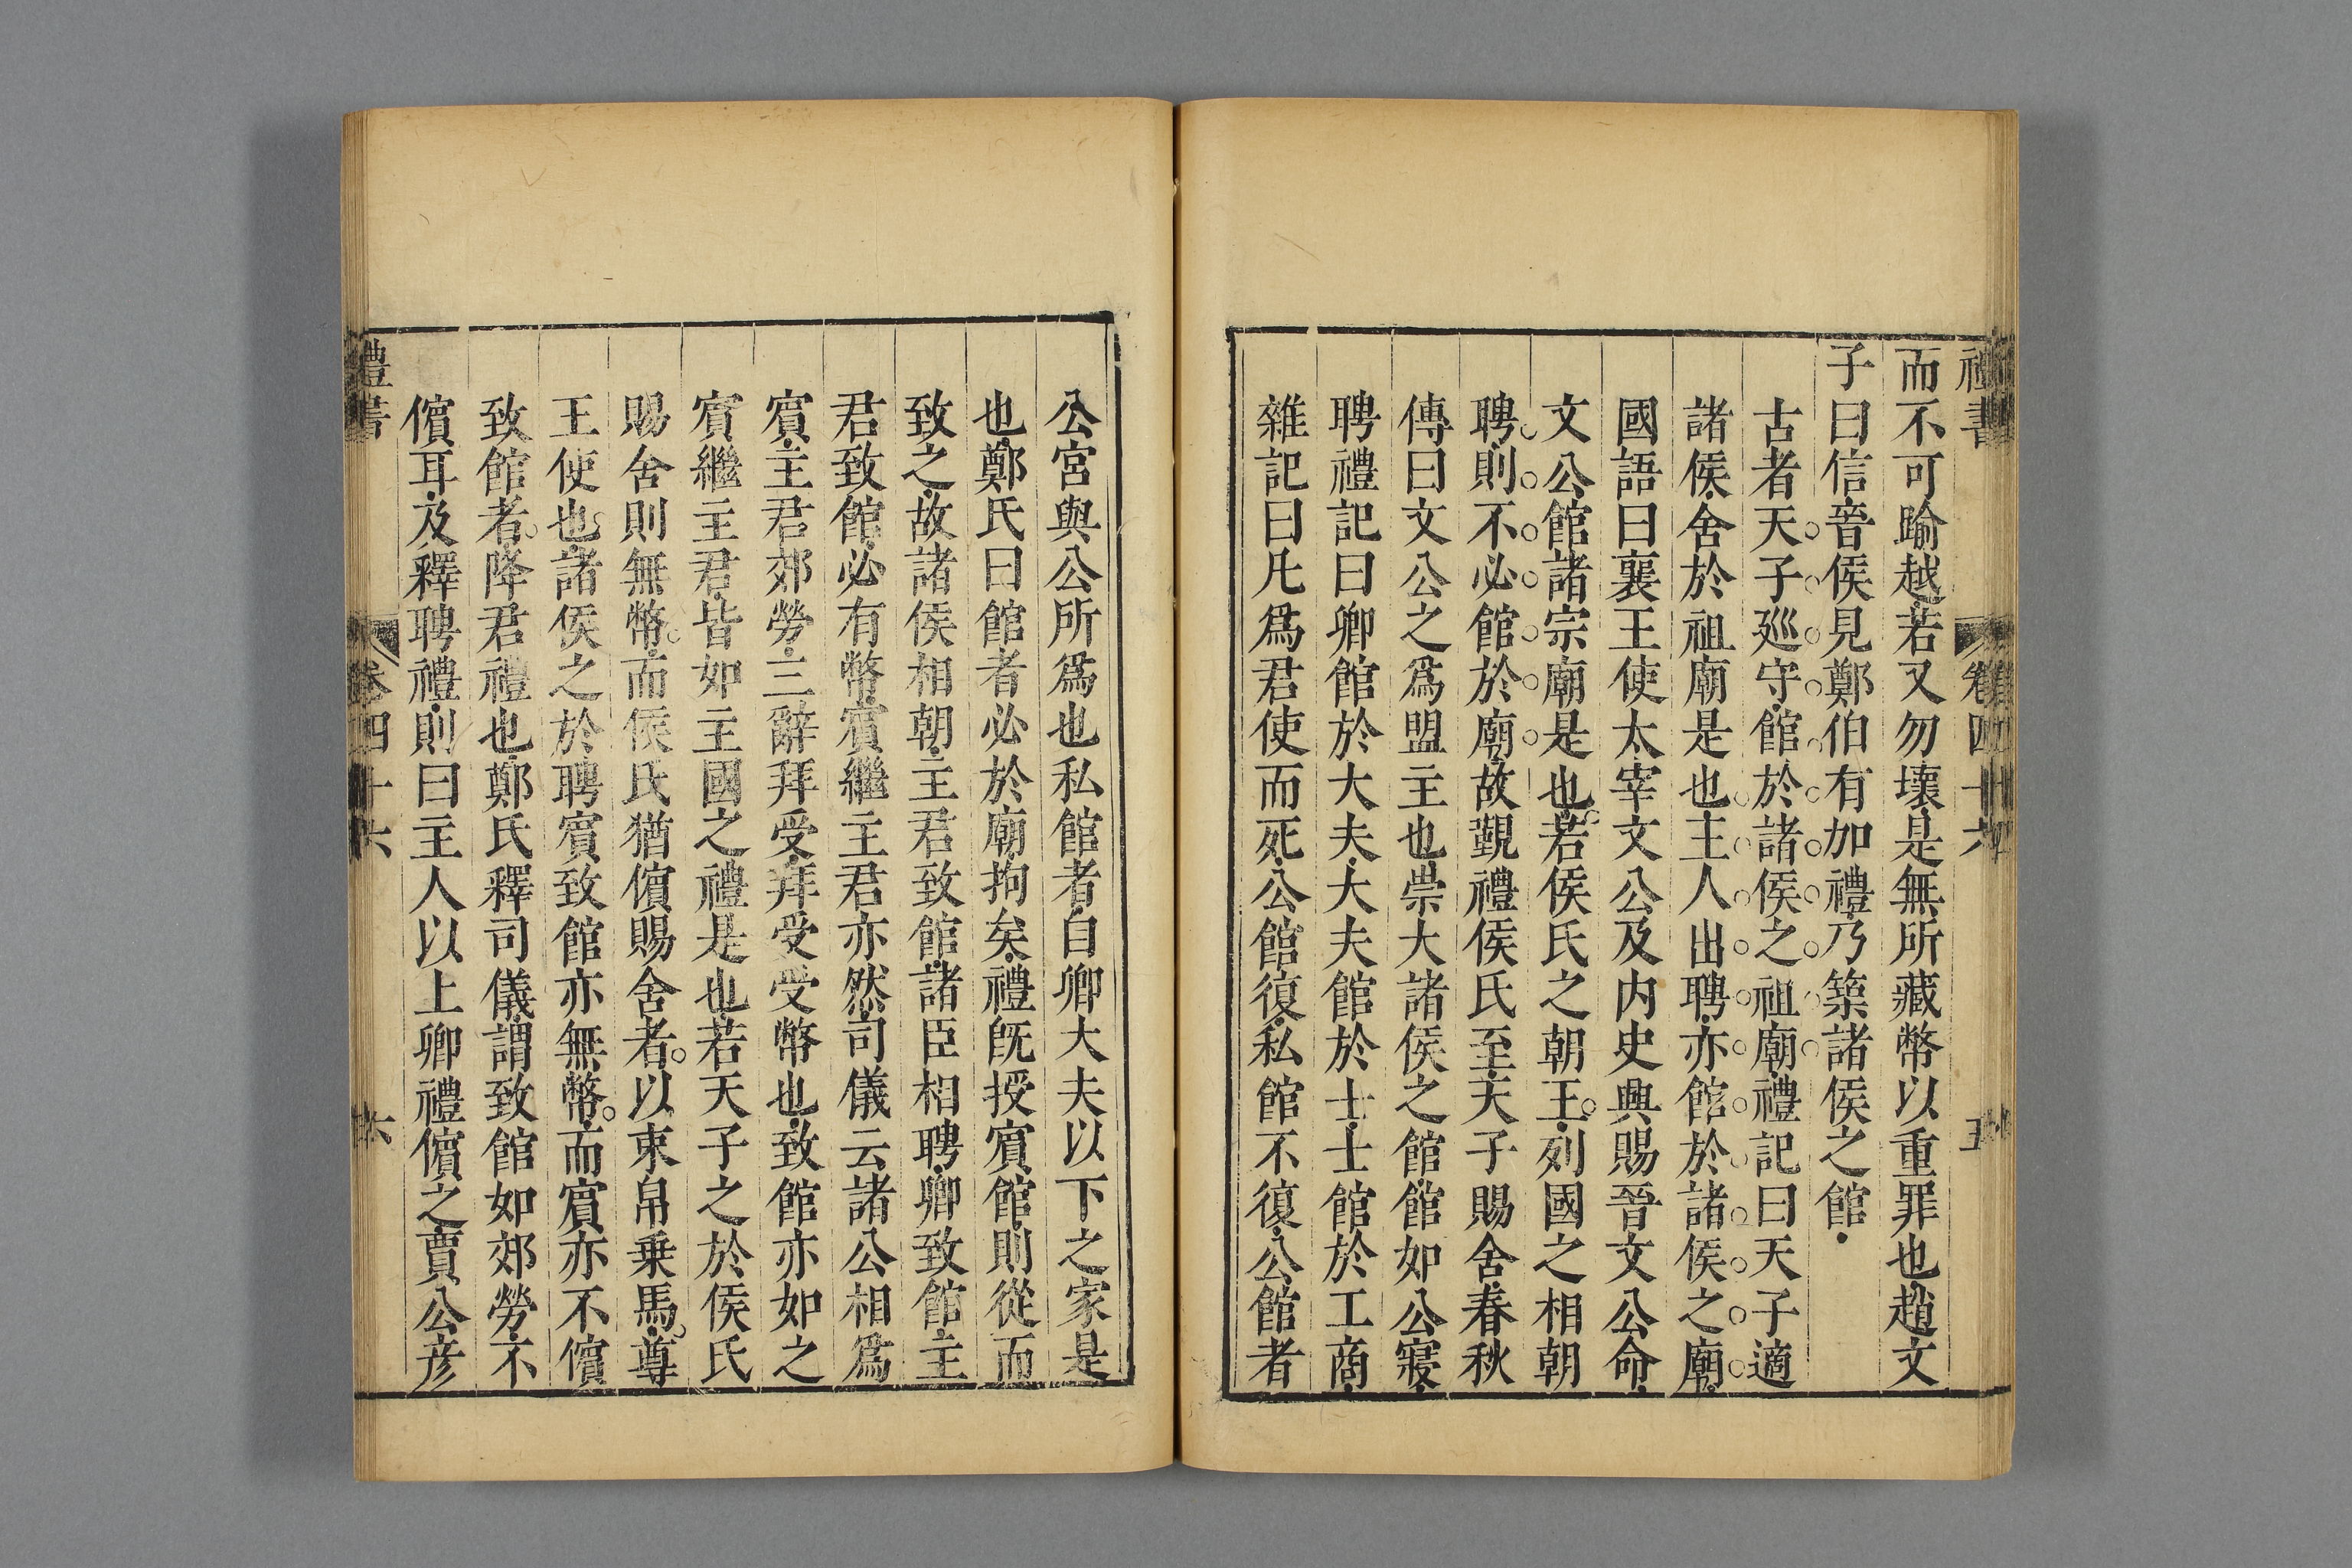 禮書 卷四十六 五
而不可踰越若又勿壞是無所藏幣以重罪也趙文
子曰信音侯見鄭伯有加禮乃築諸侯之館
古者天子廵守館於諸侯之祖廟禮記曰天子適
諸侯舍於祖廟是也主人出聘亦館於諸侯之廟
國語曰襄王使太宰文公及内史興賜晉文公命
文公館諸宗廟是也若侯氏之朝王列國之相朝
聘則不必館於廟故覲禮侯氏至天子賜舍春秋
傳曰文公之爲盟主也崇大諸侯之館館如公寢
聘禮記曰卿館於大夫大夫館於士士館於工商
雜記曰凡爲君使而死公館復私館不復公館者
公宮與公所爲也私館者自卿大夫以下之家是
也鄭氏曰館者必於廟拘矣禮旣授賓館則從而
致之故諸侯相朝主君致館諸臣相聘卿致館主
君致館必有幣賓繼主君亦然司儀云諸公相爲
賓主君郊勞三辭拜受拜受受幣也致館亦如之
賓繼主君皆如主國之禮是也若天子之於侯氏
賜舍則無幣而侯氏猶儐賜舍者以束帛乗馬尊
王使也諸侯之於聘賓致館亦無幣而賓亦不儐
致館者降君禮也鄭氏釋司儀謂致館如郊勞不
儐耳及釋聘禮則曰主人以上卿禮儐之賈公彦
禮書 卷四十六 六